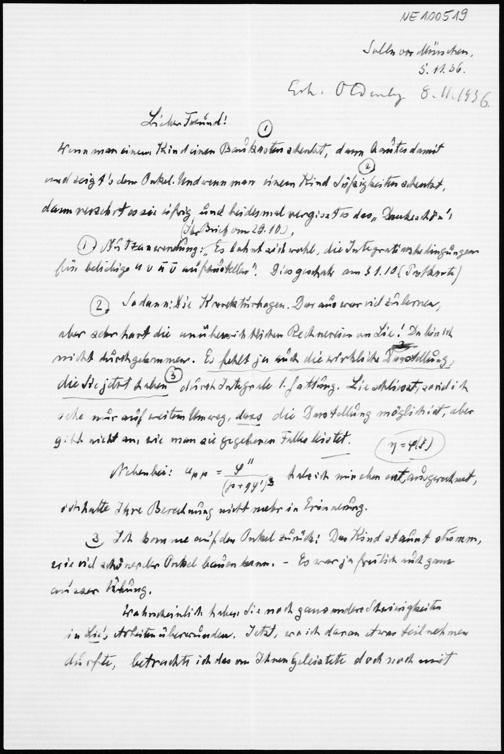 NE100519
Solln vor München,
5.11.36.
Erh. Oldenby 8.11.1936.
Lieber Freund!
①
Wenn man einem Kind einen Baukasten schenkt, dann baut es damit
②
und zeigt's dem Onkel. Und wenn man einem Kind Süssigkeiten schenkt,
dann verzehrt es sie eifrig, und beidesmal vergisst es das „Dankeschön"!
(Ihr Brief vom 29.10),
① Nutzanwendung: „Es lohnt sich wohl, die Integrationsbedingungen
für beliebige u v ū v̄ aufzustellen". Dies geschah am 31.10 (Postkarte)
②. Sodann: Die Korrekturbogen. Daraus war viel zu lernen,
aber sehr hart die unübersichtlichen Rechnereien von Lie! Da bin ich
nicht durchgekommen. Es fehlt ja auch die wirkliche Darstellung,
die Sie jetzt haben ③ durch Integrale 1. Gattung. Lie schliesst, soviel ich
sehe nur auf weitem Umweg, dass die Darstellung möglich ist, aber
gibt nicht an, wie man sie gegebenen Falles leistet. (η=φ(ξ))
Nebenbei: u_pp = φ''/(p+qy')³ habe ich mir eben erst ausgerechnet,
ich hatte Ihre Berechnung nicht mehr in Erinnerung.
③ Ich komme auf den Onkel zurück: Das Kind staunt stumm,
wie viel schöner der Onkel bauen kann. – Es war ja freilich auch ganz
ausser Übung.
Wahrscheinlich haben Sie noch ganz andere Schwierigkeiten
in Lie's Arbeiten überwunden. Jetzt, wo ich daran etwas teilnehmen
durfte, betrachte ich das von Ihnen Geleistete doch noch mit